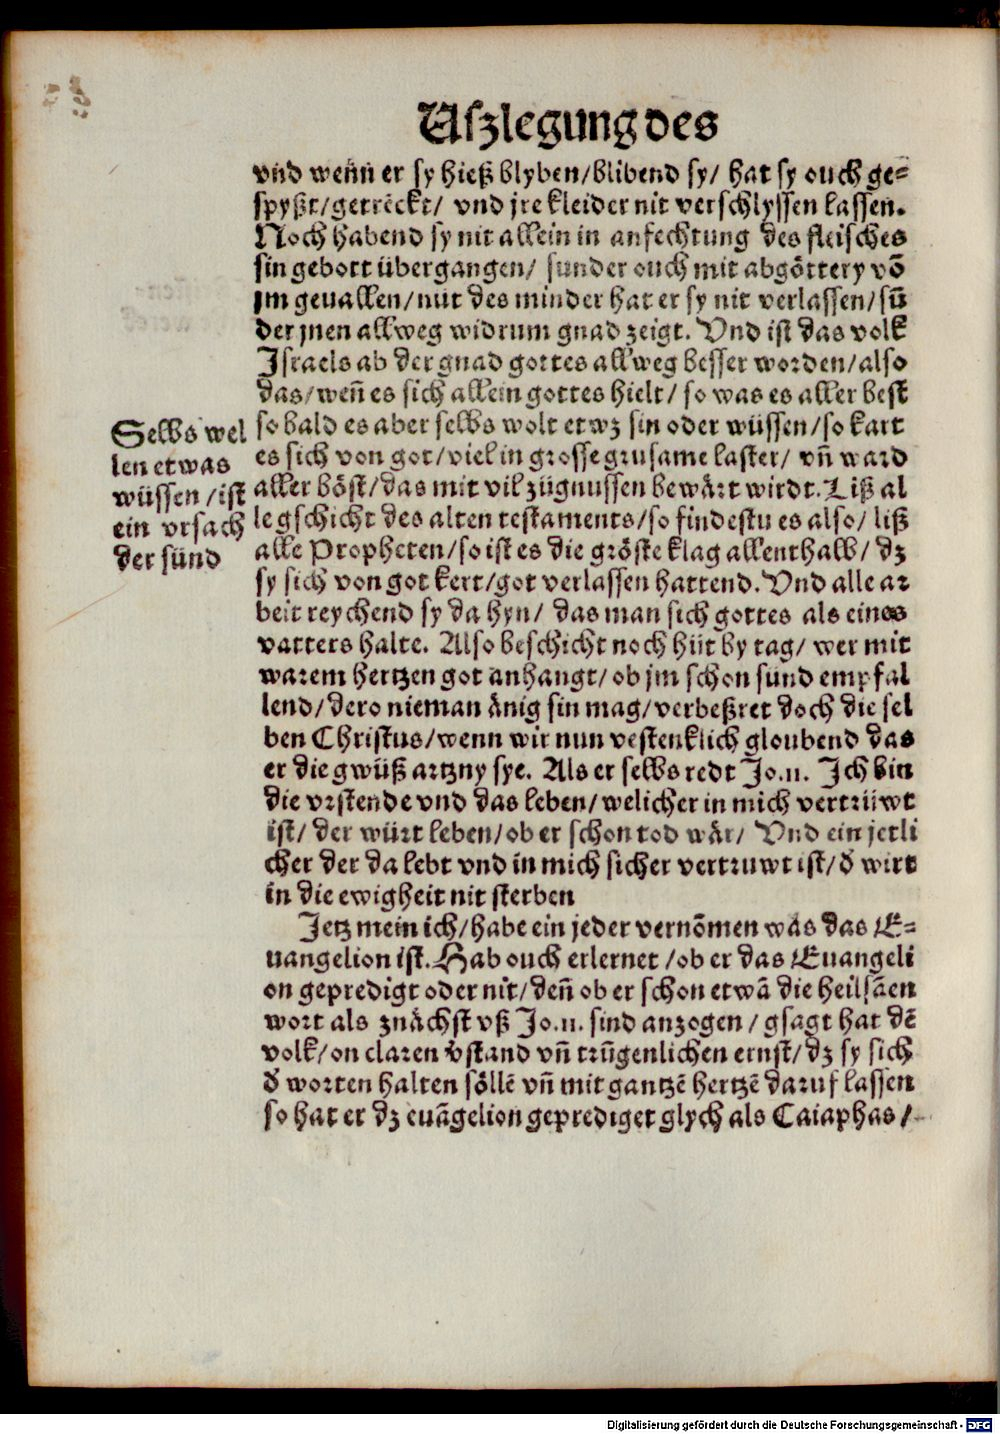 Uſzlegung des
vnd wenn er ſy hieß blyben/blibend ſy/ hat ſy ouch ge⸗
ſpyßt/getrēckt/ vnd jre kleider nit verſchlyſſen laſſen.
Noch habend ſy nit allein in anfechtung des fleiſches
ſin gebott übergangen/ ſunder ouch mit abgöttery vō
jm geuallen/nüt des minder hat er ſy nit verlaſſen/ſū
der jnen allweg widrum gnad zeigt. Vnd iſt das volk
Jſraels ab der gnad gottes allweg beſſer worden/alſo
das/weñ es ſich allein gottes hielt/ ſo was es aller beſt
ſo bald es aber ſelbs wolt etwz ſin oder wüſſen/ſo kart
es ſich von got/viel in groſſe gruſame laſter/ vñ ward
aller böſt/das mit vil zügnuſſen bewärt wirdt. Liß al
le gſchicht des alten teſtaments/ſo findeſtu es alſo/ liß
alle Propheten/ſo iſt es die gröſte klag allenthalb/ dz
ſy ſich von got kert/got verlaſſen hattend. Vnd alle ar
beit reychend ſy da hyn/ das man ſich gottes als eines
vatters halte. Alſo beſchicht noch hüt by tag/ wer mit
warem hertzen got anhangt/ob jm ſchon ſünd empfal
lend/dero nieman änig ſin mag/verbeßret doch die ſel
ben Chriſtus/wenn wir nun veſtenklich gloubend das
er die gwüß artzny ſye. Als er ſelbs redt Jo.11. Jch bin
die vrſtende vnd das leben/welicher in mich vertrüwt
iſt/ der würt leben/ob er ſchon tod wär/ Vnd ein jetli
cher der da lebt vnd in mich ſicher vertruwt iſt/ď wirt
in die ewigheit nit ſterben
Jetz mein ich/habe ein jeder vernōmen was das E⸗
uangelion iſt. Hab ouch erlernet/ob er das Euangeli
on gepredigt oder nit/deñ ob er ſchon etwā die heilſāen
wort als znächſt vß Jo.11. ſind anzogen/gſagt hat dē
volk/on claren v̄ſtand vñ trūgenlichen ernſt/dz ſy ſich
ď worten halten ſöllē vñ mit gantzē hertzē daruf laſſen
ſo hat er dz euāgelion geprediget glych als Caiaphas/
Selbs wel
len etwas
wüſſen/iſt
ein vrſach
der ſünd
Digitalisierung gefördert durch die Deutsche Forschungsgemeinschaft - DFG